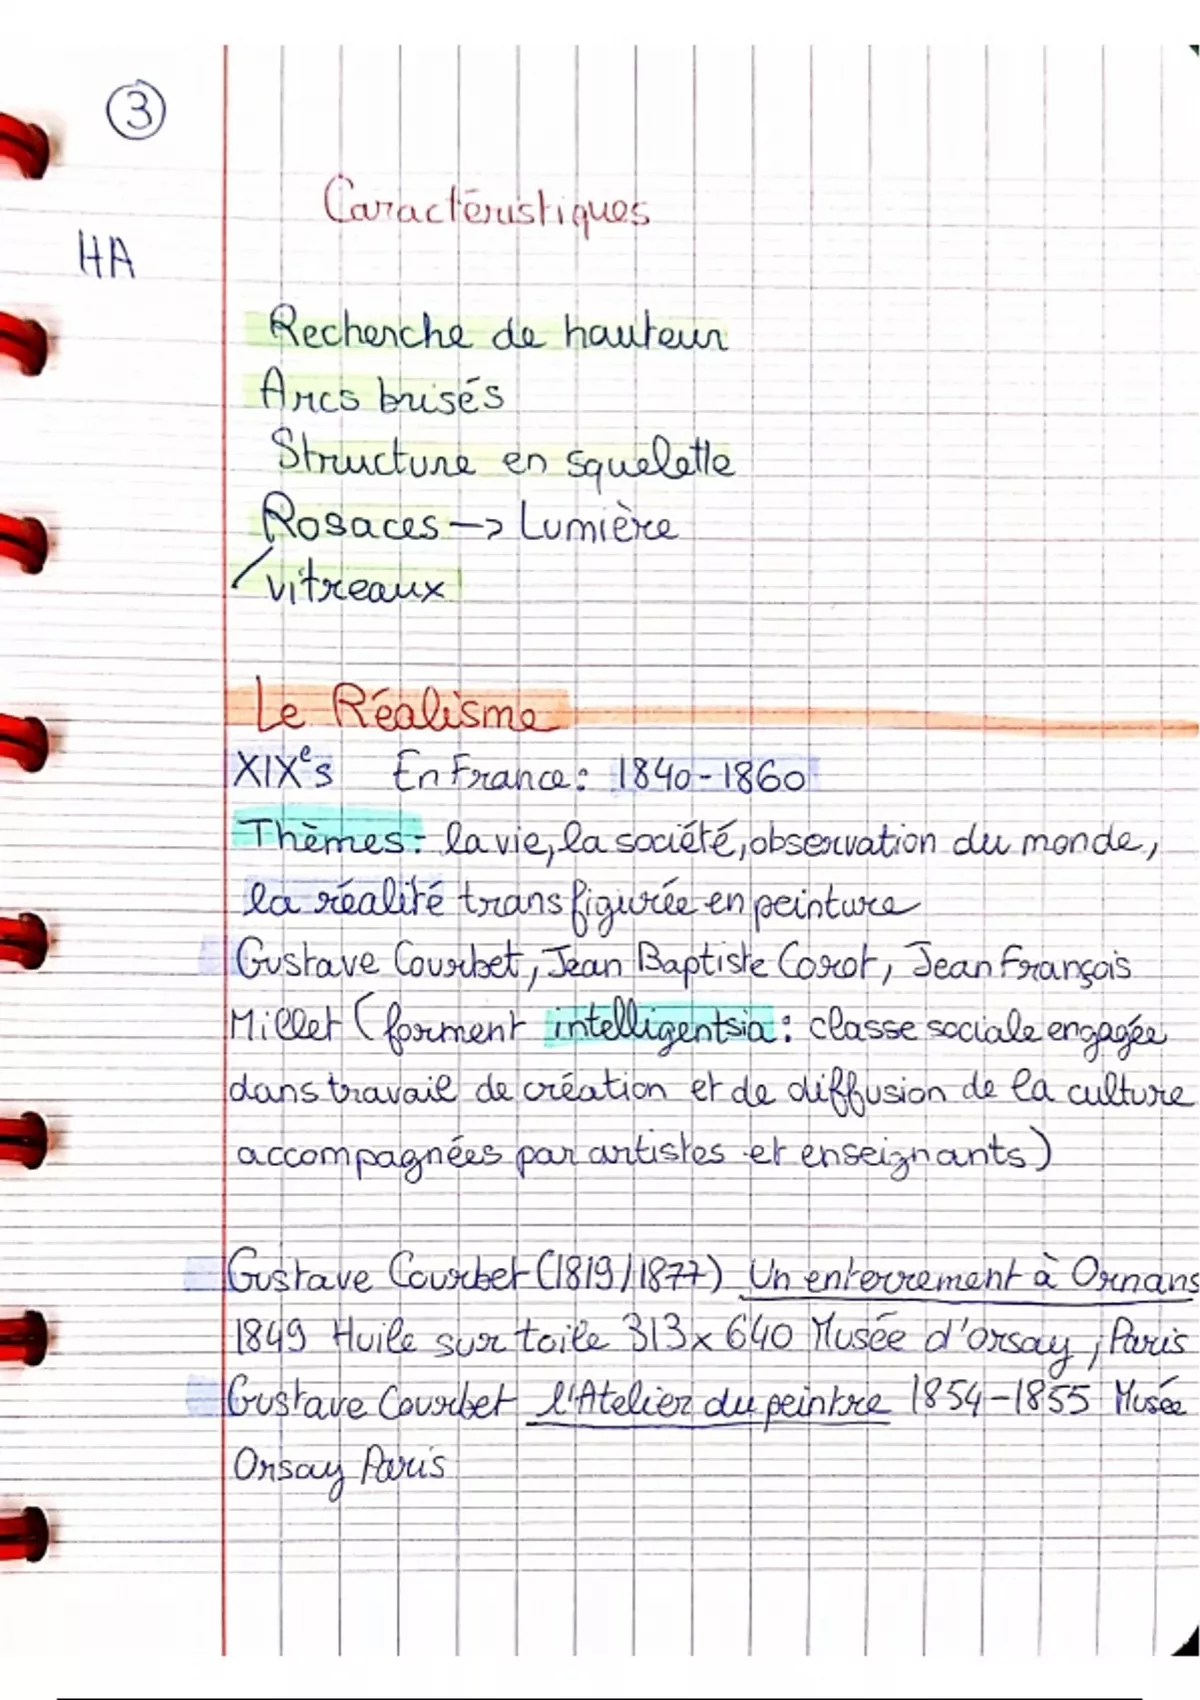 3
Caractéristiques
HA
Recherche de hauteur
Arcs brisés
Structure en squelette
Rosaces -> Lumière
/vitreaux
Le Réalisme
XIXe s En France : 1840-1860
Thèmes : la vie, la société, observation du monde,
la réalité transfigurée en peinture
Gustave Courbet, Jean Baptiste Corot, Jean François
Millet (forment intelligentsia : classe sociale engagée
dans travail de création et de diffusion de la culture
accompagnées par artistes et enseignants)
Gustave Courbet (1819/1877) Un enterrement à Ornans
1849 Huile sur toile 313x640 Musée d'orsay, Paris
Gustave Courbet l'Atelier du peintre 1854-1855 Musée
Orsay Paris